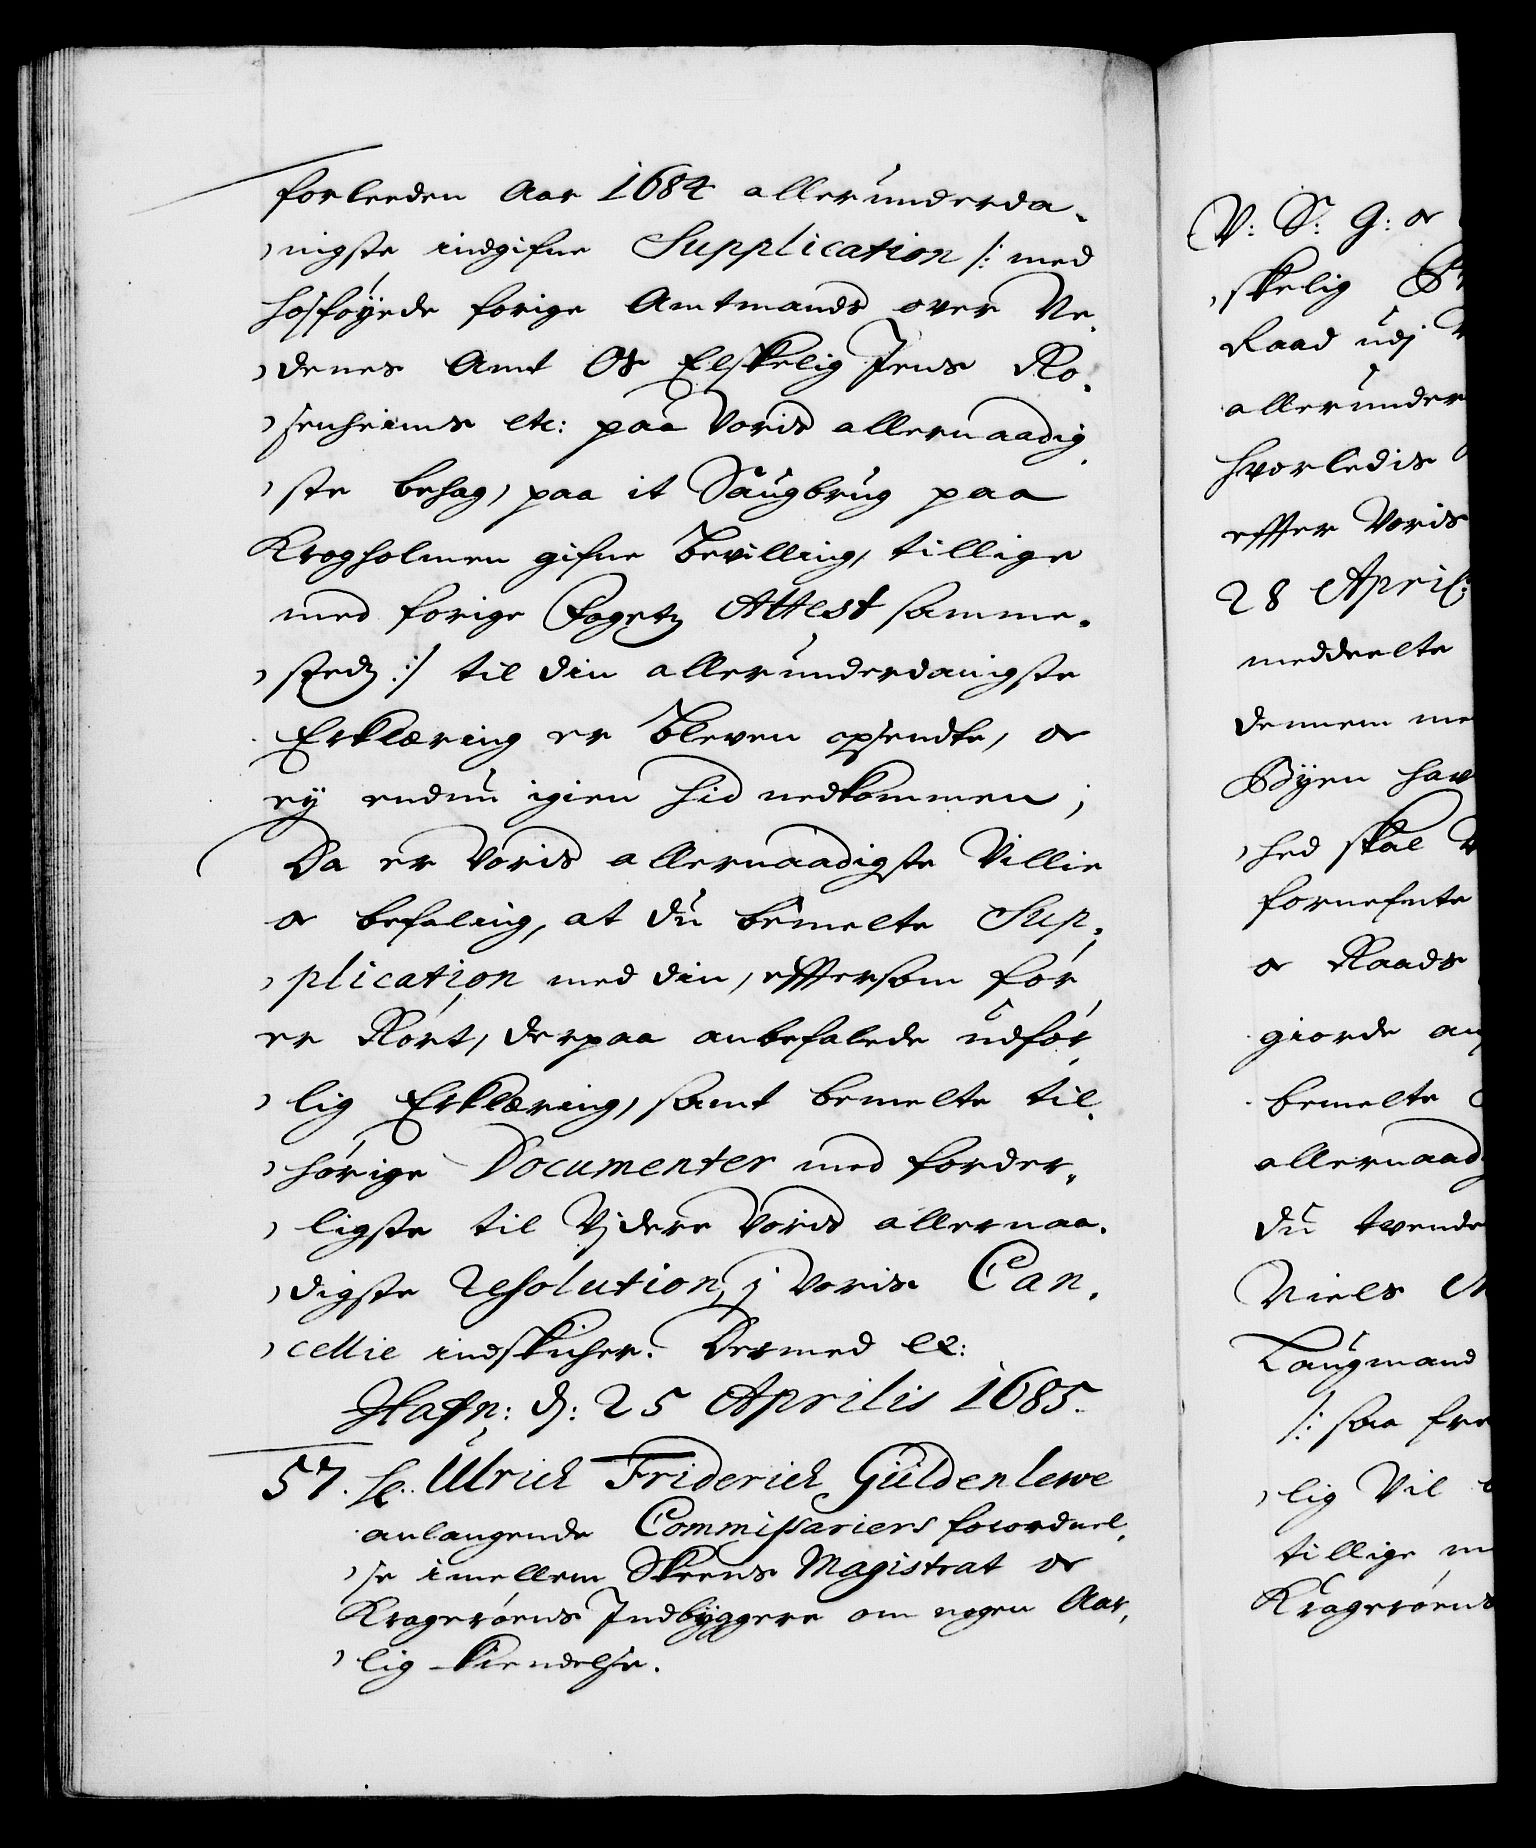 forleeden Aar 1684 allerunderda-
nigste indgifne Supplication /: med
hosføyede forige Amtmands over Ne-
denes Amt Os Elskelig Jens Ro-
senheims etc: paa Voris allernaadig-
ste behag, paa it Saugbrug paa
Krogholmen gifne Bevilling, tillige
med forige Fogetz Attest samme-
stedz :/ til din allerunderdanigste
Erklæring er bleven opsendte, oc
ey endnu igien hid nedkommen;
Da er Voris allernaadigste Villie
oc befaling, at du bemelte Sup-
plication med din, effter som før
er Rørt, derpaa anbefalede udfør-
lig Erklæring, samt bemelte til-
hørige Documenter med forder-
ligste til Vjdere Voris allernaa-
digste Resolution, j Voris Can-
cellie indskicher. Dermed etc:
Hafn: d: 25 Aprilis 1685.
57. He. Ulrich Friderich Güldenlewe
anlangende Commissariers forordnel-
se imellem Skeens Magistrat oc
Kragerøens Indbyggere om nogen Aar-
lig Kiendelse.
V: S: G: oc
skelig
Raad udj
allerunder
hvorledis
effter Voris
28 April:
meddeelte
dennem me
Byen hav
hed skal
fornefnte
oc Raads
giorde an
bemelte
allernaad
du tvende
Niels
Laugmand
/: saa fre
lig Vil
tillige m
Kragerøens